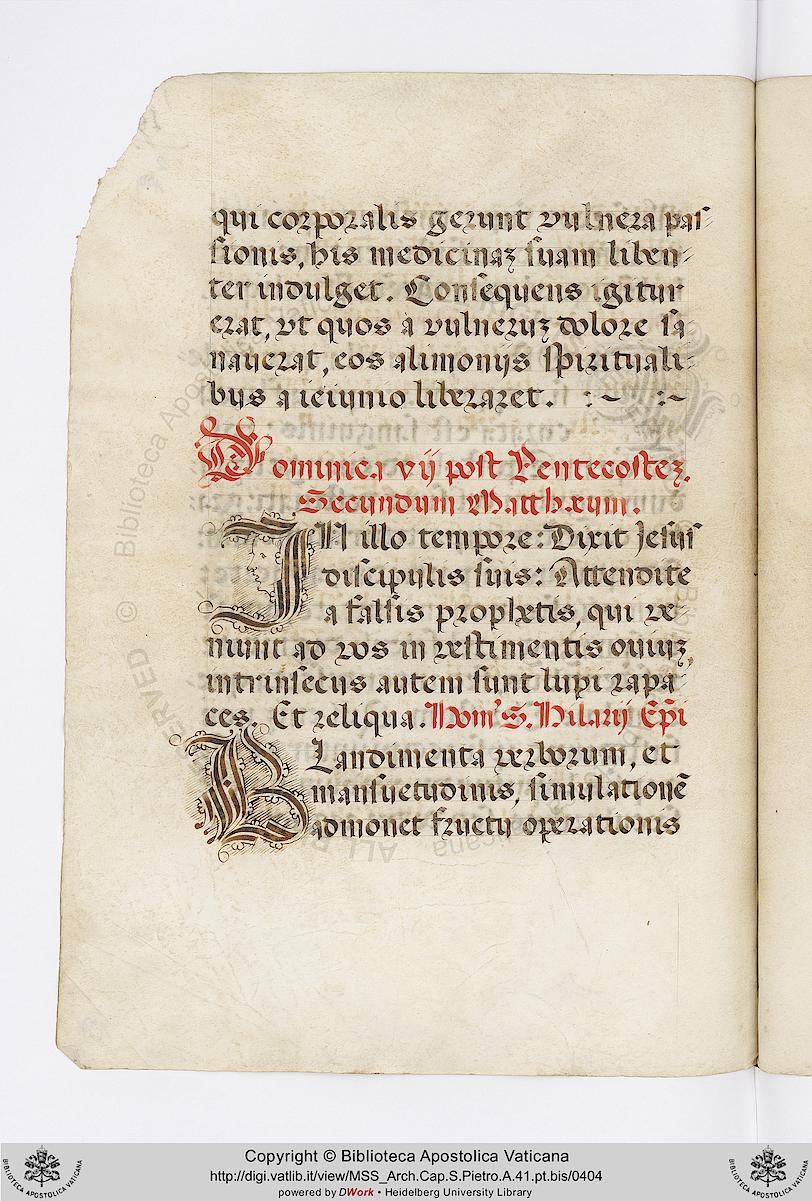 qui corporalis gerunt vulnera pas
sionis, his medicinaȝ suam liben-
ter indulget. Consequens igitur
erat, vt quos a vulneruȝ dolore sa
nauerat, eos alimonijs spirituali-
bus a ieiunio liberaret. :~ :~
Dominica vij post Pentecosteȝ.
Secundum Matthæum.
IN illo tempore: Dixit Jesus
discipulis suis: Attendite
a falsis prophetis, qui ve-
niunt ad vos in vestimentis ouiuȝ,
intrinsecus autem sunt lupi rapa-
ces. Et reliqua. Hom' S. Hilarij Ep̃i
BLandimenta verborum, et
mansuetudinis, simulationẽ
admonet fructu operationis
© Biblioteca Aposto
ERVED
Copyright © Biblioteca Apostolica Vaticana
http://digi.vatlib.it/view/MSS_Arch.Cap.S.Pietro.A.41.pt.bis/0404
powered by DWork • Heidelberg University Library
BIBLIOTECA APOSTOLICA VATICANA
BIBLIOTECA APOSTOLICA VATICANA